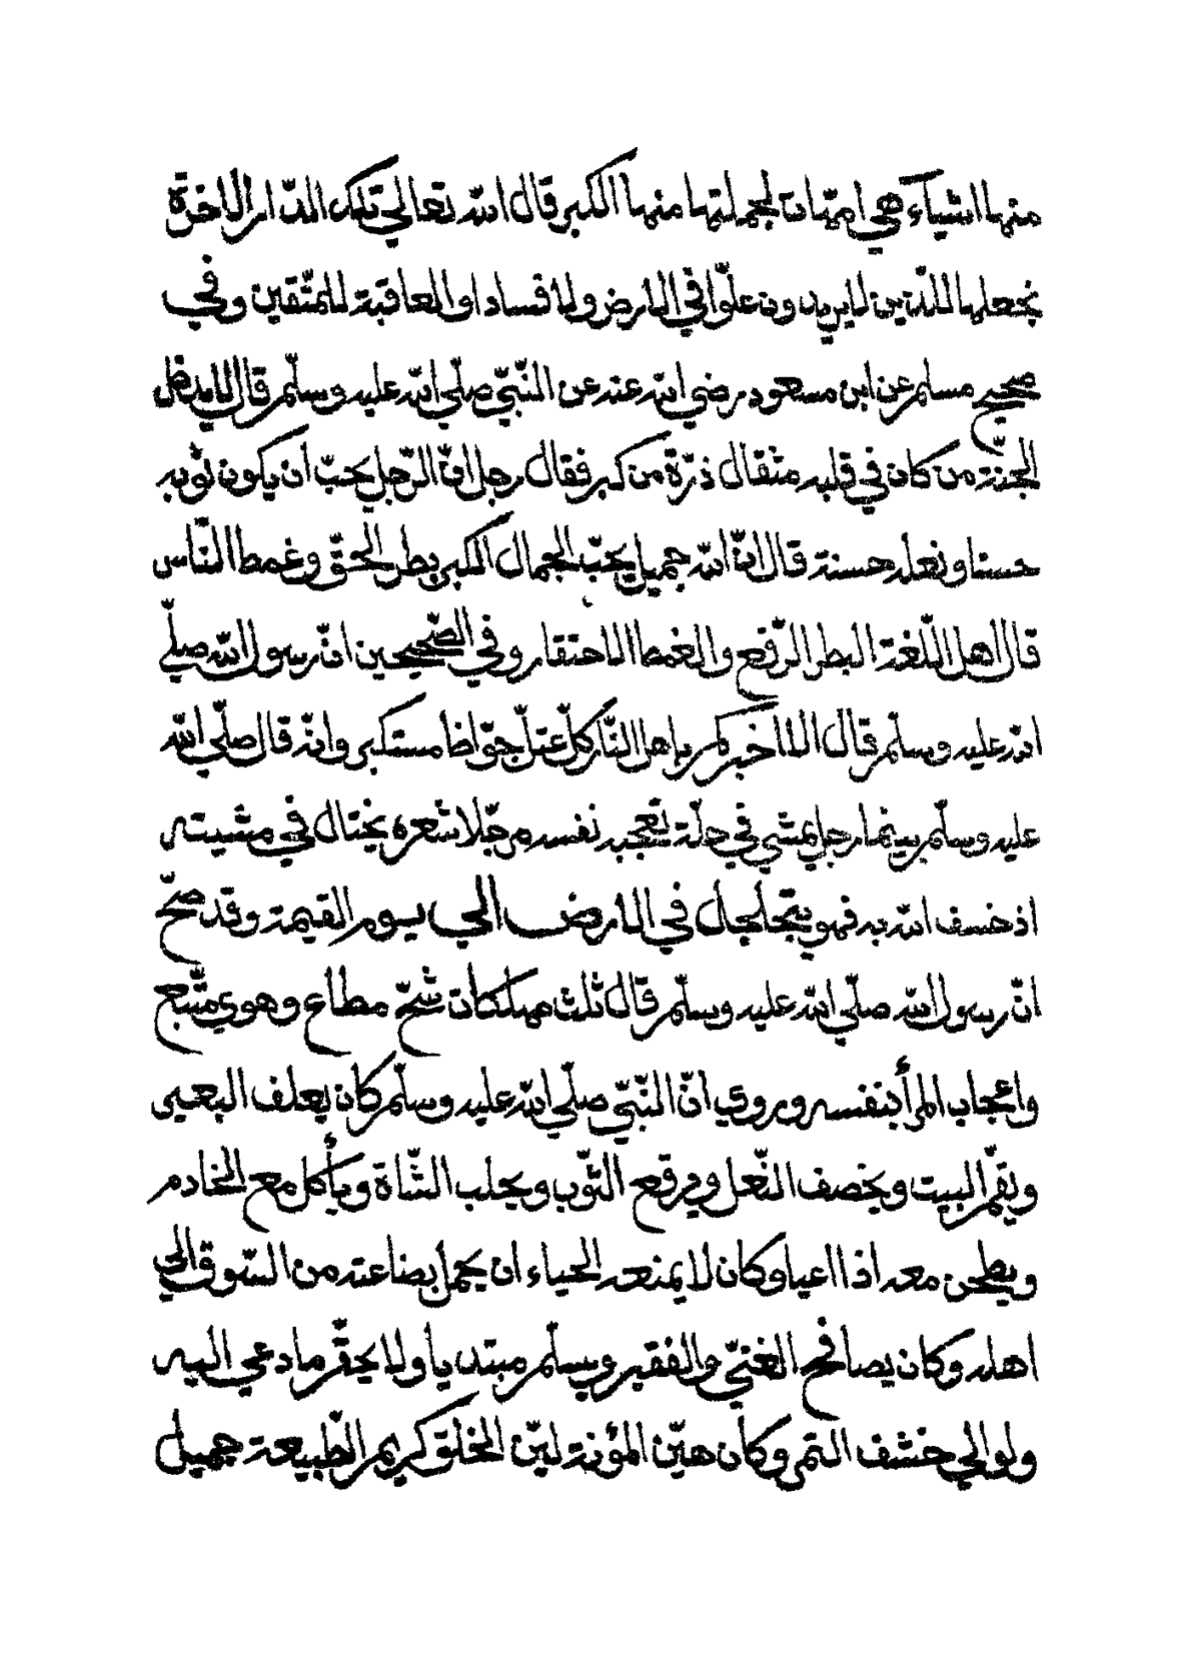 منها اشياء هي امّهات لجملتها منها الكبر قال الله تعالي تلك الدّار الاخرة
نجعلها للذين لا يريدون علوّا في الارض ولا فسادا والعاقبة للمتّقين وفي
صحيح مسلم عن ابن مسعود رضي الله عنه عن النّبيّ صلّي الله عليه وسلّم قال لا يدخل
الجنّة من كان في قلبه مثقال ذرّة من كبر فقال رجل انّ الرّجل يحبّ أن يكون ثوبه
حسنا ونعله حسنة قال انّ الله جميل يحبّ الجمال الكبر بطر الحقّ وغمط النّاس
قال اهل اللّغة البطر الرّفع والغمط الاحتقار وفي الصّحيحين انّ رسول الله صلّي
الله عليه وسلّم قال الا اخبركم باهل النّار كلّ عتلّ جوّاظ مستكبر وانّه قال صلّي الله
عليه وسلّم بينما رجل يمشي في حلّة تعجبه نفسه مرجّلا شعره يختال في مشيته
اذ خسف الله به فهو يتجلجل في الارض الي يوم القيمة وقد صحّ
انّ رسول الله صلّي الله عليه وسلّم قال ثلث مهلكات شحّ مطاع وهوي متّبع
واعجاب المرأ بنفسه وروي انّ النّبيّ صلّي الله عليه وسلّم كان يعلف البعير
ويقمّ البيت ويخصف النّعل ويرقع الثّوب ويحلب الشّاة ويأكل مع الخادم
ويطحن معه اذا اعيا وكان لا يمنعه الحياء ان يحمل بضاعته من السّوق الي
اهله وكان يصافح الغنيّ والفقير ويسلّم مبتديا ولا يحقّر ما دعي اليه
ولو الي حشف التمر وكان هيّن المؤنة ليّن الخلق كريم الطّبيعة جميل